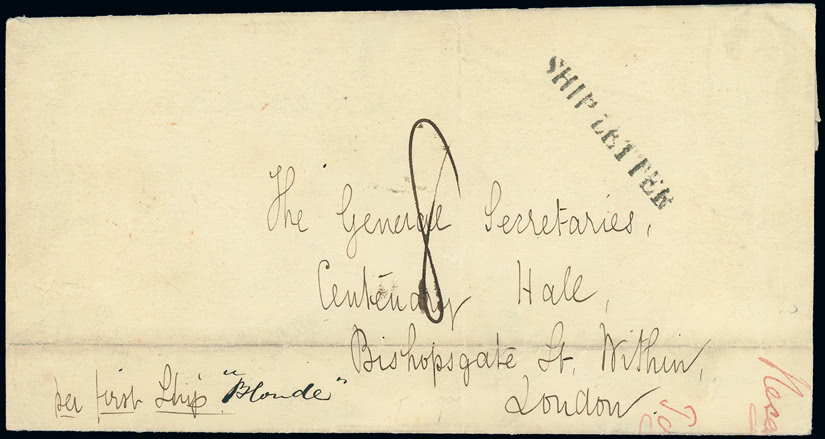 SHIP LETTER
8
The General Secretaries,
Centenary Hall,
Bishopsgate St. Within,
London.
per first Ship "Blonde"